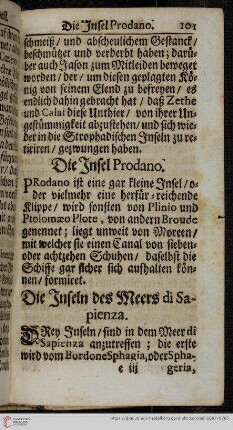 Die Insel Prodano. 101
schmeiß / und abscheulichem Gestanck /
beschmützet und verderbt haben; darü-
ber auch Jason zum Mitleiden beweget
worden / der / um diesen geplagten Kö-
nig von seinem Elend zu befreyen / es
endlich dahin gebracht hat / daß Zethe
und Calai diese Unthier / von ihrer Un-
gestümmigkeit abzustehen / und sich wie-
der in die Strophadischen Inseln zu re-
tiriren / gezwungen haben.
Die Insel Prodano.
PRodano ist eine gar kleine Insel / o-
der vielmehr eine herfür-reichende
Klippe / wird sonsten von Plinio und
Ptolomæo Plote, von andern Broude
genennet; liegt unweit von Moreen /
mit welcher sie einen Canal von sieben-
oder achtzehen Schuhen / daselbst die
Schiffe gar sicher sich aufhalten kön-
nen / formiret.
Die Inseln des Meers di Sa-
pienza.
DRey Inseln / sind in dem Meer di
Sapienza anzutreffen; die erste
wird vom Bordone Sphagia, oder Spha-
e iij geria,